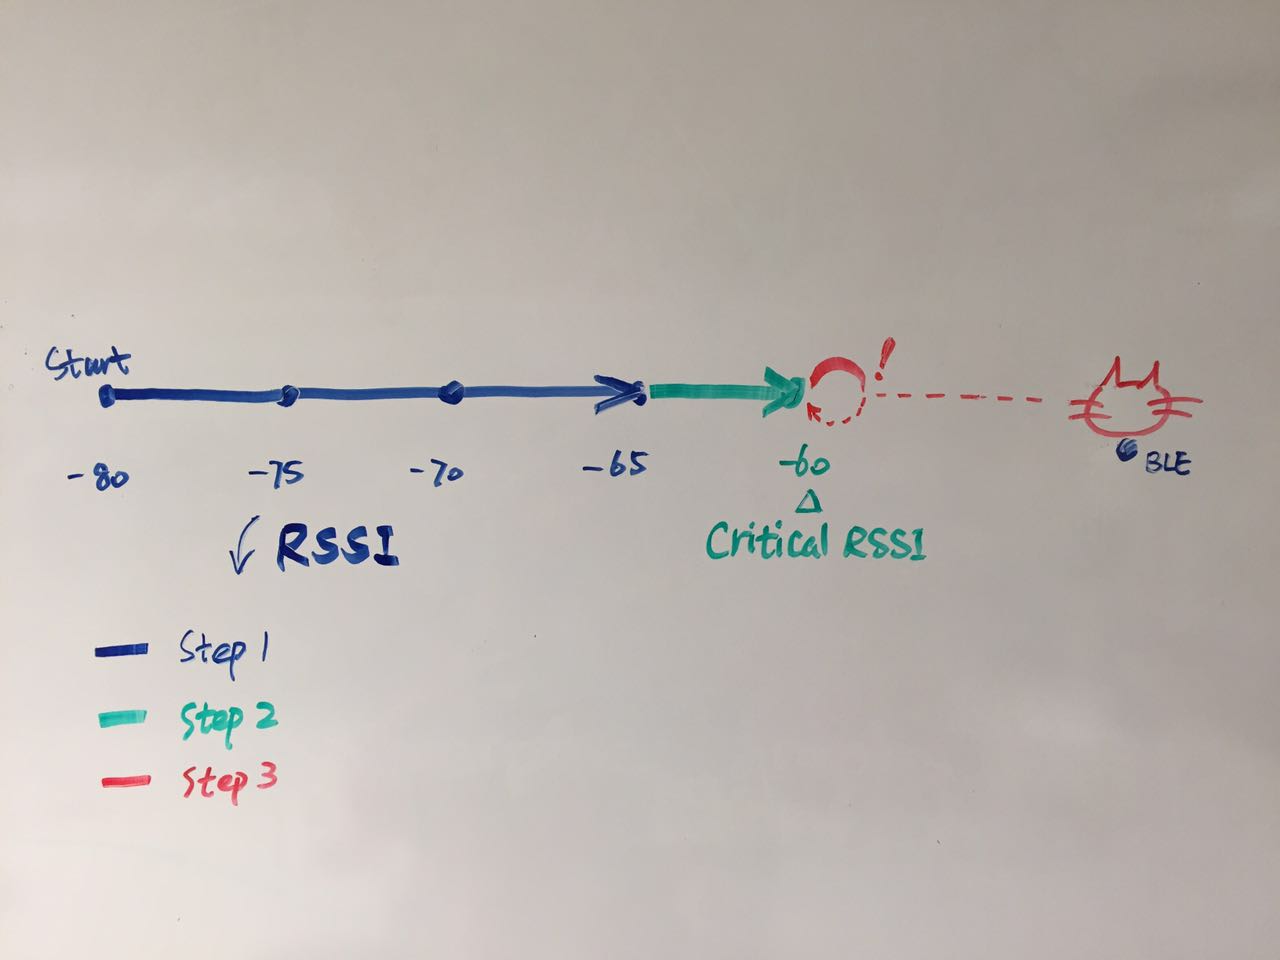 Start
!
-80 -75 -70 -65 -60
RSSI
Critical RSSI
BLE
Step 1
Step 2
Step 3